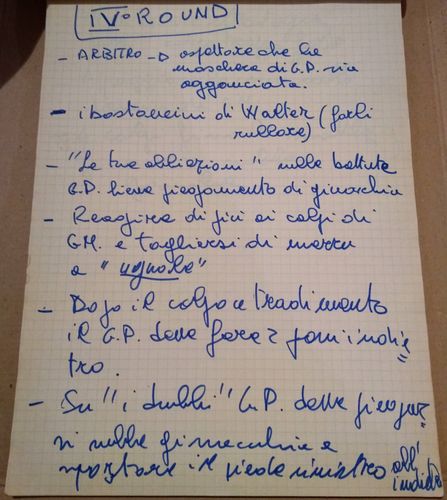 IV° ROUND
- ARBITRO → aspettare che la
maschera di G.P. sia
agganciata.
- i bastoncini di Walter (farli
rullare)
- "Le tue obiezioni" sulla battuta
G.P. lieve piegamento di ginocchia
- Reagire di più ai colpi di
GM. e togliersi di mezzo
a "ugnola"
- Dopo il colpo a tradimento
il G.P. deve fare 2 passi indie
tro.
- Su "i dubbi" G.P. deve piegar
si sulle ginocchia e
spostare il piede sinistro all'
indietro